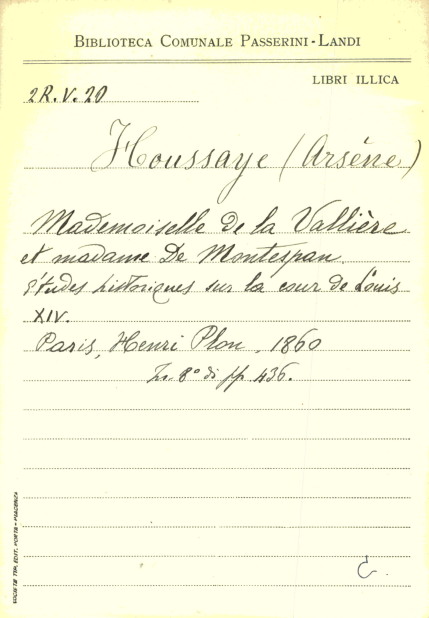 BIBLIOTECA COMUNALE PASSERINI-LANDI
LIBRI ILLICA
2R.V.20
Houssaye (Arsène)
Mademoiselle de la Vallière
et madame De Montespan
études historiques sur la cour de Louis
XIV.
Paris, Henri Plon, 1860
In-8° di pp. 436.
C.
SOCIETÀ TIP. EDIT. PORTA - PIACENZA